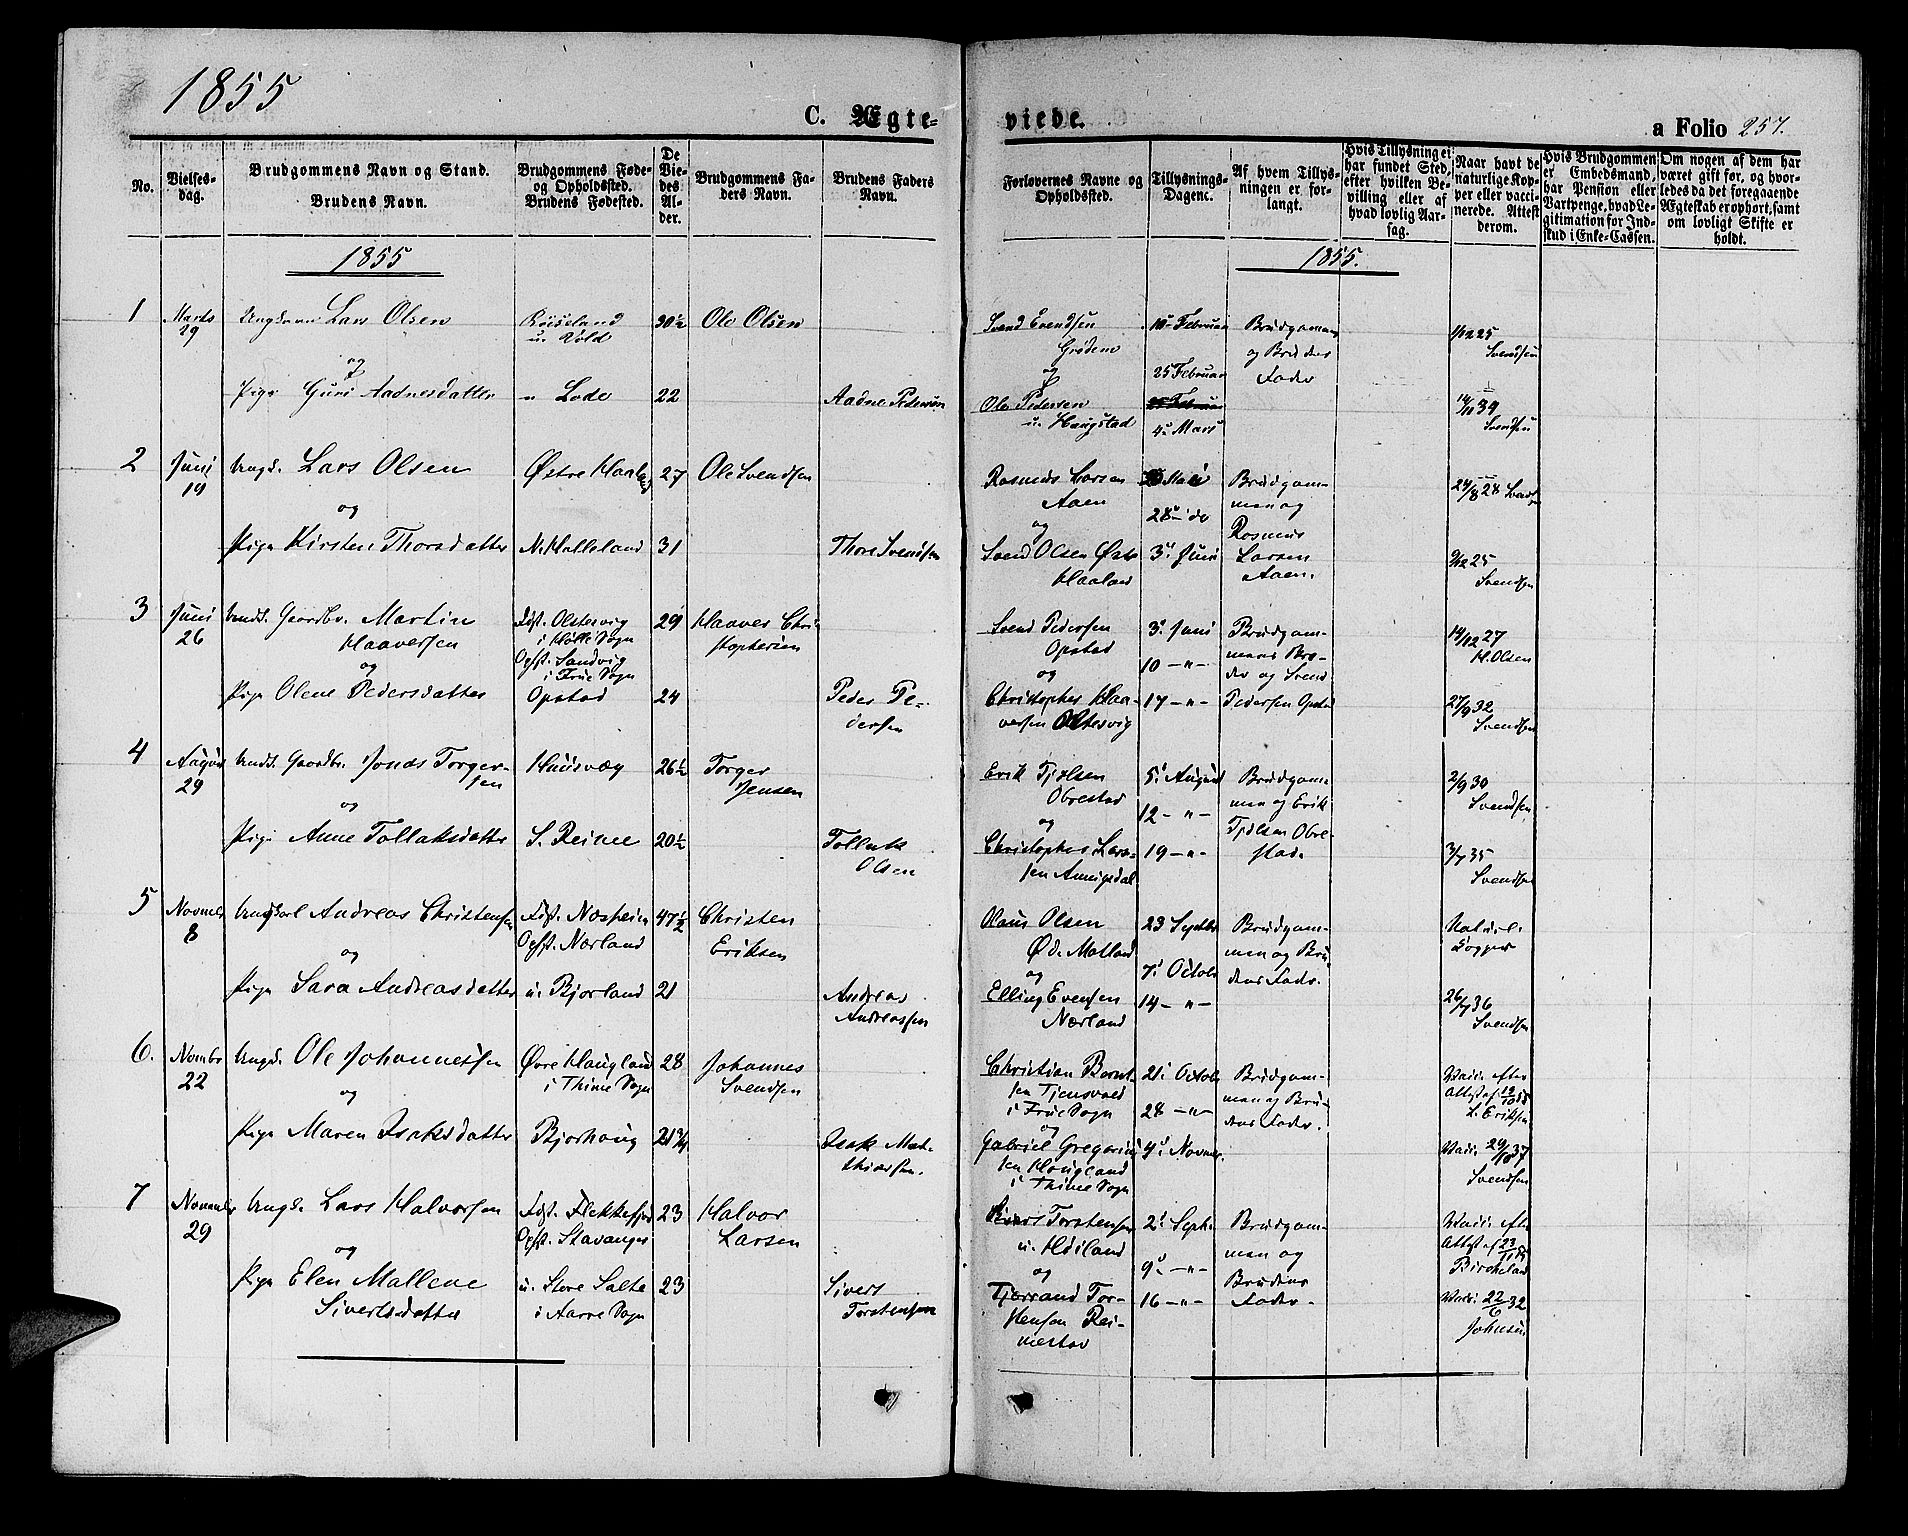 1855
C. Ægte-
viede.
a Folio 257.
No.
Vielses-
dag.
Brudgommens Navn og Stand.
Brudens Navn.
Brudgommens Føde-
og Opholdssted.
Brudens Fødested.
De
Vie-
des
Al-
der.
Brudgommens Fa-
ders Navn.
Brudens Faders
Navn.
Forlovernes Navne og
Opholdssted.
Tillysnings-
Dagene.
Af hvem Tillys-
ningen er for-
langt.
Hvis Tillysning ei
har fundet Sted,
efter hvilken Be-
villing eller af
hvad lovlig Aar-
sag.
Naar havt de
naturlige Kop-
per eller vacci-
nerede. Attest
derom.
Hvis Brudgommen
er Embedsmand,
har Pension eller
Vartpenge, hvad Le-
gitimation for Ind-
skud i Enke-Cassen.
Om nogen af dem har
været gift før, og hvor-
ledes da det foregaaende
Ægteskab er ophørt, samt
om lovligt Skifte er
holdt.
1855
1855.
1
Marts
29
Ungkarl Lars Olsen
og
Pige Guri Aadnesdatter
u. Vold
" Lode
30½
22
Ole Olsen
Aadne Pedersen
Svend Svendsen
Grødem
og
Ole Pedersen
u. Haugstad
18 Februar
25 Februar
4 Mars
Brudgommen
og Brudens
Fader
1/12 25
Svendsen
14/11 39
Svendsen
2
Juni
19
Ungk. Lars Olsen
og
Pige Kirsten Thorsdatter
Østre Haaland
N. Halleland
27
31
Ole Svendsen
Thore Svendsen
Rasmus Larsen
Aaen
og
Svend Olsen Øst
Haaland
Mai
28 do
3 Juni
Brudgom-
men og
Rasmus
Larsen
Aaen.
24/8 28
9/12 25
Svendsen
3
Juni
26
Gaardbr. Martin
Haaversen
og
Pige Olene Pedersdatter
Fdst. Oltesvig
i Høle Sogn
Opst. Sandvig
i Frue Sogn
Opstad
29
24
Haaver Chri
stophersen
Peder Pe-
dersen
Svend Pedersen
Opstad
og
Christopher Haa-
versen Oltesvig
3 Juni
10 - " -
17 - " -
Brudgom-
mens Bro-
der og Svend
Pedersen Opstad
14/12 27
H. Olsen
27/9 32
Svendsen
4
August
29
Gaardbr. Jonas Torger-
sen
og
Pige Anne Tollaksdatter
Hausvæg
S. Reime
26½
20½
Torger
Jensen
Tollak
Olsen
Erik Tjølsen
Obrestad
og
Christopher Lar-
sen Auvigsdal
5 August
12 - " -
19 - " -
Brudgom-
men og Erik
Tjølsen Obre-
stad.
2/9 30
Svendsen
3/7 35
Svendsen
5
Novmbr
8
Ungkarl Andreas Christensen
og
Pige Sara Andreasdatter
Fdst. Næsheim
Opst. Nærland
u. Bjorland
47½
21
Christen
Eriksen
Andreas
Andreassen
Claus Olsen
Ød. Matland
og
Elling Evensen
Nærland
23 Septbr
7 Octobr
14 - " -
Brudgom-
men og Bru
dens Fader.
Naturl.
Kopper
26/7 36
Svendsen
6.
Novmbr
22
Ungk. Ole Johannessen
og
Pige Maren Isaksdatter
Øvre Haugland
i Thime Sogn
Bjorhaug
28
21¾
Johannes
Svendsen
Isak Mat-
thiassen.
Christian Bernt-
sen Tjensvold
i Frue Sogn
og
Gabriel Gregorius
sen Haugland
i Thime Sogn
21 Octobr
28 - " -
4 Novmr.
Brudgom-
men og Bru-
dens Fader.
Vacc. efter
Attest af 19/10 55
L. Eriksen
Vacc. 29/10 37
Svendsen
7
Novembr
29
Ungk. Lars Halvorsen
og
Pige Elen Mallene
Sivertsdatter
Fdst. Flekkefjord
Opst. Stavanger
u. Store Salte
i Aarre Sogn
23
23
Halvor
Larsen
Sivert
Torstensen
Sivert Torstensen
u. Høiland
og
Tjerrand Tor-
stensen Rei-
mestad
2 Septb.
9 - " -
16 - " -
Brudgom-
men og
Brudens
Fader.
Vacc. efter
Attest af 23/11 55
Birkeland
Vacc. 22/6 32
Johnsen